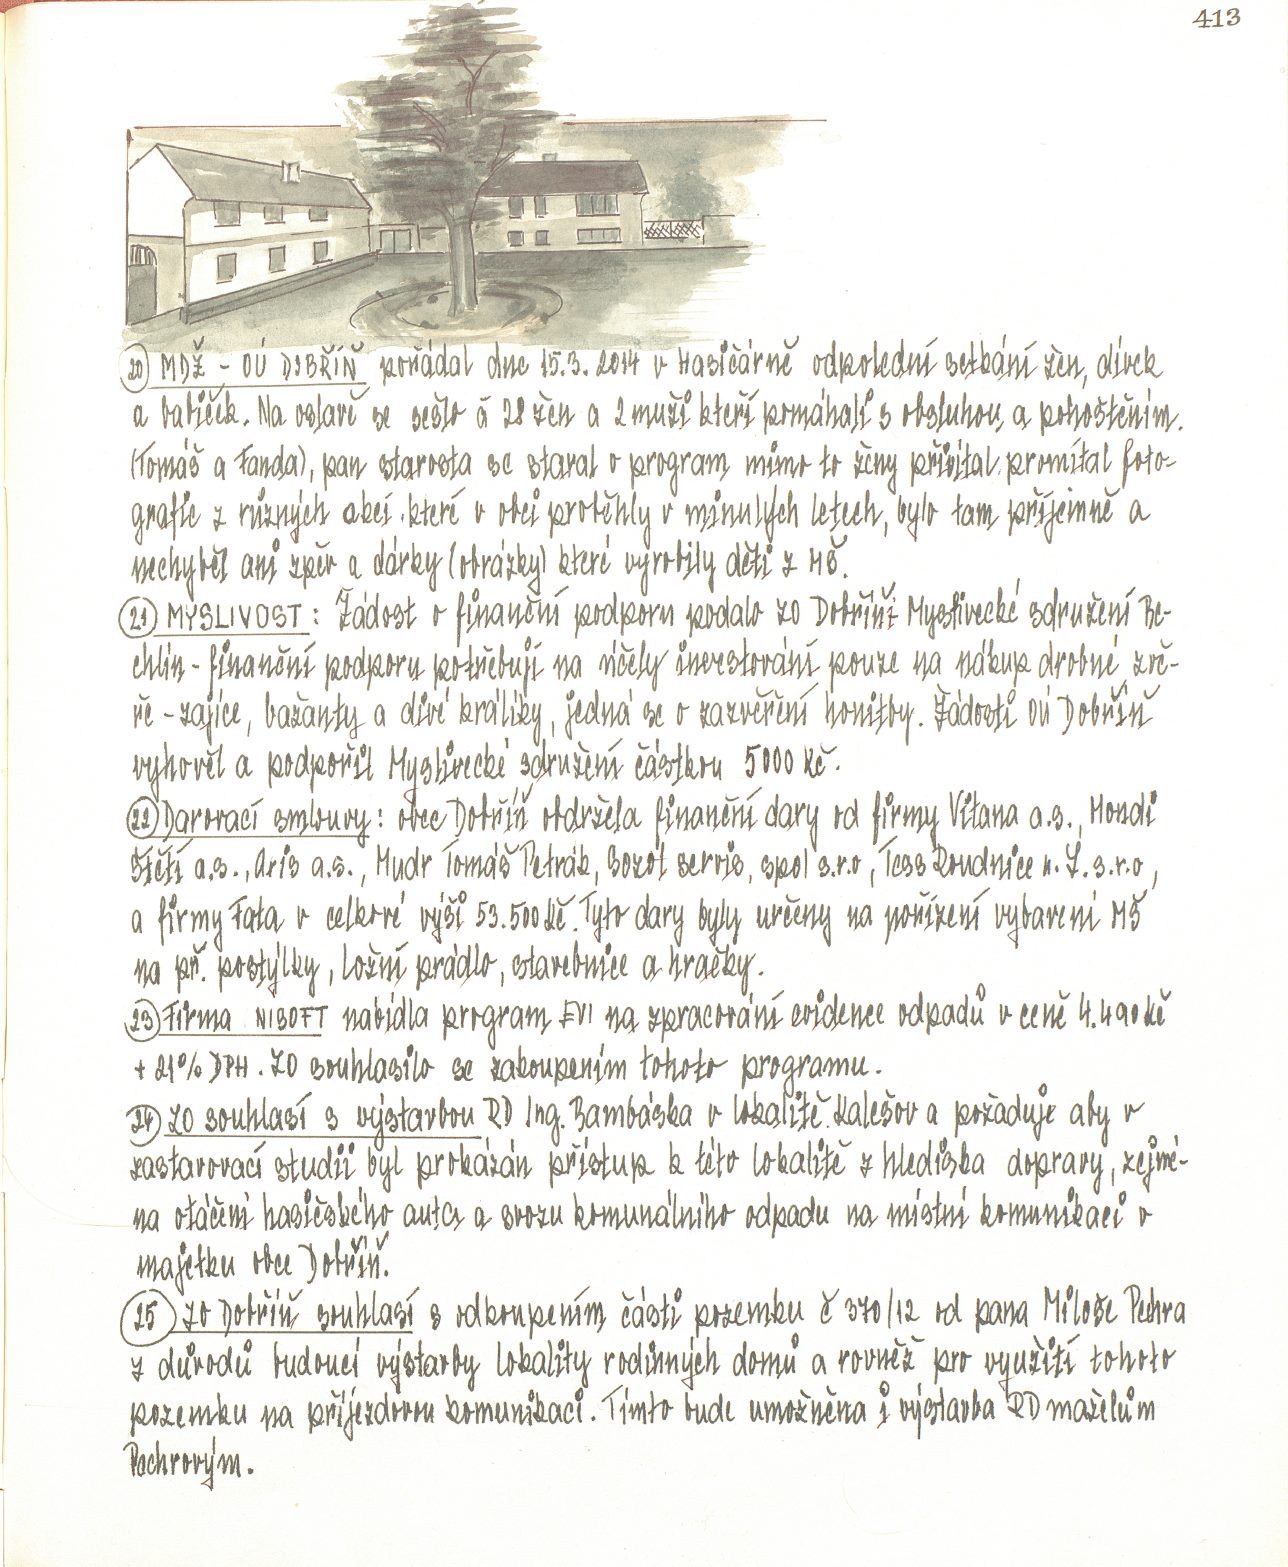 413
20 MDŽ - OÚ DOBŘÍŇ pořádal dne 15.3. 2014 v Hasičárně odpolední setkání žen, dívek
a babiček. Na oslavě se sešlo á 28 žen a 2 muži kteří pomáhali s obsluhou, a pohoštěním.
(Tomáš a Fanda), pan starosta se staral o program mimo to ženy přivítal, promítal foto-
grafie z různých akcí kteří v obci proběhly v minulých letech, bylo tam příjemně a
nechyběl ani zpěv a dárky (obrázky) které vyrobily děti z MŠ.
21 MYSLIVOST: Žádost o finanční podporu podalo ZO Dobříni Myslivecké sdružení Be-
chlín - finanční podporu potřebují na účely investování pouze na nákup drobné zvě-
ře - zajíce, bažanty a divé králíky, jedná se o zazvěření honitby. Žádosti OÚ Dobříň
vyhověl a podpořil Myslivecké sdružení částkou 5000 Kč.
22 Darovací smlouvy: obec Dobříň obdržela finanční dary od firmy Vitana a.s., Mondi
Štětí a.s., Aris a.s., Mudr Tomáš Petrák, Sozot servis, spol s.r.o, Tess Roudnice n. L. s.r.o,
a firmy Fata v celkové výši 53.500 Kč. Tyto dary byly určeny na pořízení vybavení MŠ
na př. postýlky, ložní prádlo, stavebnice a hračky.
23 Firma NISOFT nabídla program EVI na zpracování evidence odpadů v ceně 4.490 Kč
+ 21% DPH. ZO souhlasilo se zakoupením tohoto programu.
24 ZO souhlasí s výstavbou RD Ing. Bambáska v lokalitě Kalešov a požaduje aby v
zastavovací studii byl prokázán přístup k této lokalitě z hlediska dopravy, zejmé-
na otáčení hasičského auta a svozu komunálního odpadu na místní komunikaci v
majetku obce Dobříň.
25 ZO Dobříň souhlasí s odkoupením části pozemku č 370/12 od pana Miloše Pechra
z důvodů budoucí výstavby lokality rodinných domů a rovněž pro využití tohoto
pozemku na příjezdovou komunikaci. Tímto bude umožněna i výstavba RD manželům
Pechrovým.